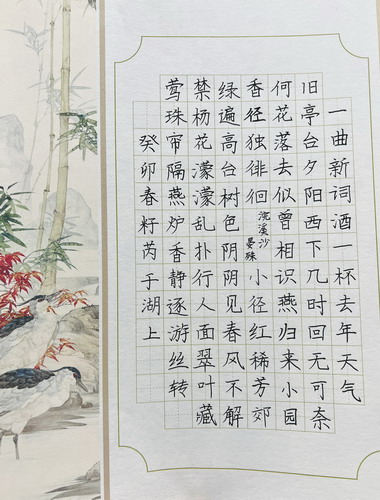 一曲新词酒一杯去年天气
旧亭台夕阳西下几时回无可奈
何花落去似曾相识燕归来小园
香径独徘徊浣溪沙晏殊小径红稀芳郊
绿遍高台树色阴阴见春风不解
禁杨花濛濛乱扑行人面翠叶藏
莺珠帘隔燕炉香静逐游丝转
癸卯春籽芮于湖上